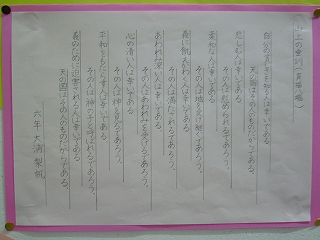 山上の垂訓（一月暗唱）
自分の貧しさを知る人は幸いである。
天の国はその人のものだからである。
悲しむ人は幸いである。
その人は慰められるであろう。
柔和な人は幸いである。
その人は地を受け継ぐであろう。
義に飢えかわく人は幸いである。
その人は満たされるであろう。
あわれみ深い人は幸いである。
その人はあわれみを受けるであろう。
心の清い人は幸いである。
その人は神を見るであろう。
平和をもたらす人は幸いである。
その人は神の子と呼ばれるであろう。
義のために迫害される人は幸いである。
天の国はその人のものだからである。
六年 大浦 梨帆